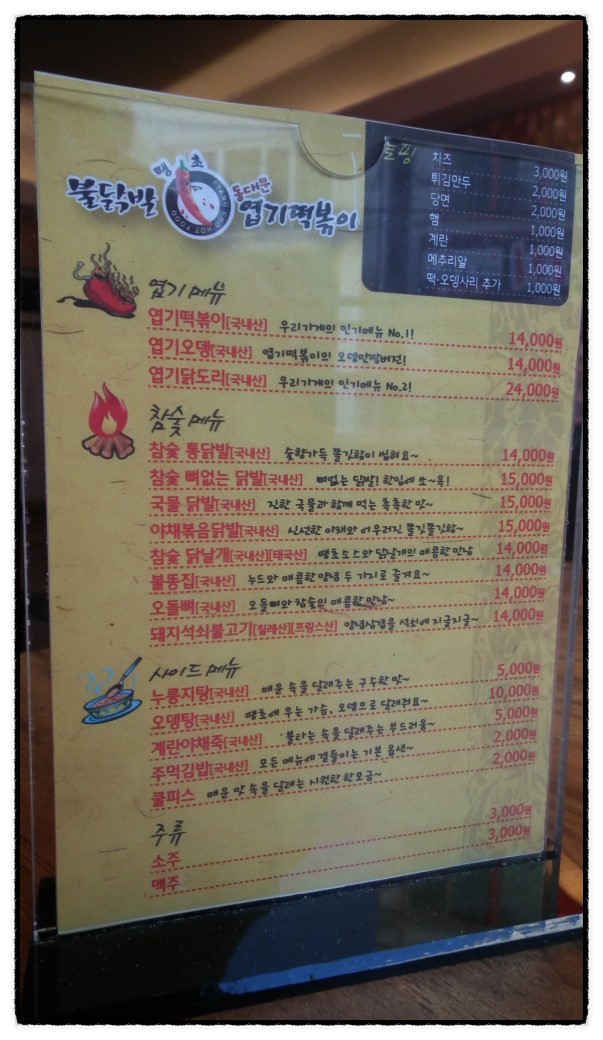 불닭발 땡초 동대문 엽기떡볶이
토핑
치즈 3,000원
튀김만두 2,000원
당면 2,000원
햄 1,000원
계란 1,000원
메추리알 1,000원
떡·오뎅사리 추가 1,000원
엽기 메뉴
엽기떡볶이[국내산] 우리가게의 인기메뉴 No.1! 14,000원
엽기오뎅[국내산] 엽기떡볶이의 오뎅만땅버전! 14,000원
엽기닭도리[국내산] 우리가게의 인기메뉴 No.2! 24,000원
참숯 메뉴
참숯 통닭발[국내산] 숯향가득 쫄깃함이 씹혀요~ 14,000원
참숯 뼈없는 닭발[국내산] 뼈없는 닭발! 한입에 쏘~옥! 15,000원
국물 닭발[국내산] 진한 국물과 함께 먹는 촉촉한 맛~ 15,000원
야채볶음닭발[국내산] 신선한 야채와 어우러진 쫄깃쫄깃함~ 15,000원
참숯 닭날개[국내산][태국산] 땡초소스와 닭날개의 매콤한 만남 14,000원
불똥집[국내산] 누드와 매콤한양념 두 가지로 즐겨요~ 14,000원
오돌뼈[국내산] 오돌뼈와 참숯의 매콤한 만남~ 14,000원
돼지석쇠불고기[칠레산][프랑스산] 양념삼겹을 석쇠에 지글지글~ 14,000원
사이드 메뉴
누룽지탕[국내산] 매운 속을 달래주는 구수한 맛~ 5,000원
오뎅탕[국내산] 땡초에 우는 가슴, 오뎅으로 달래줘요~ 10,000원
계란야채죽[국내산] 불타는 속을 달래주는 부드러움~ 5,000원
주먹김밥[국내산] 모든 메뉴에 곁들이는 기본 옵션~ 2,000원
쿨피스 매운 맛 속을 달래는 시원한 한모금~ 2,000원
주류
소주 3,000원
맥주 3,000원